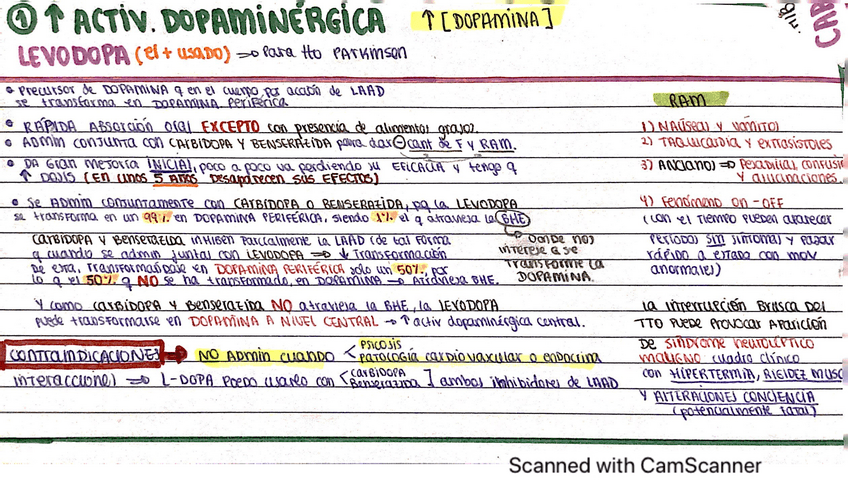 ① ↑ ACTIV. DOPAMINÉRGICA ↑ [DOPAMINA]
LEVODOPA (el + usado) ⇒ Para tto PARKINSON
• Precursor de DOPAMINA q en el cuerpo por acción de LAAD
se transforma en DOPAMINA PERIFÉRICA
• RÁPIDA ABSORCIÓN ORAL EXCEPTO con presencia de alimentos grasos.
• ADMIN conjunta con CARBIDOPA Y BENSERAZIDA para dar ⊖ cant de F y RAM.
• DA Gran mejoría INICIAL, poco a poco va perdiendo su EFICACIA y tengo q
↑ DOSIS (EN UNOS 5 AÑOS Desaparecen sus EFECTOS)
• Se ADMIN conjuntamente con CARBIDOPA O BENSERAZIDA, pq la LEVODOPA
se transforma en un 99% en DOPAMINA PERIFÉRICA, siendo 1% el q atraviesa la BHE
↳ Donde nos
interesa q se
Transforme la
DOPAMINA.
CARBIDOPA y Benserazida inhiben parcialmente la LAAD (de tal forma
q cuando se admin juntas con LEVODOPA ⇒ ↓ Transformación
De esta, transformándose en DOPAMINA PERIFÉRICA solo un 50% por
lo q el 50% q NO se ha transformado, en DOPAMINA → Atraviesa BHE.
Y como CARBIDOPA Y Benserazida NO atraviesa la BHE, la LEVODOPA
puede transformarse en DOPAMINA A NIVEL CENTRAL → ↑ activ dopaminérgica central.
CONTRAINDICACIONES → NO Admin cuando < PSICOSIS
patología cardiovascular o endocrina
interacciones ⇒ L-DOPA puedo usarlo con < CARBIDOPA
Benserazida ] ambos inhibidores de LAAD
RAM
1) NÁUSEAS y vómitos
2) TAQUICARDIA y extrasístoles
3) ANCIANOS ⇒ Posibilidad confusión
Y alucinaciones
4) Fenómeno ON-OFF
(con el tiempo pueden aparecer
períodos sin síntomas y pasar
rápido a estado con mov
anormales)
La interrupción Brusca del
TTO PUEDE PROVOCAR APARICIÓN
DE síndrome neuroléptico
maligno cuadro clínico
con HIPERTERMIA, RIGIDEZ MUSC
Y ALTERACIONES CONCIENCIA
(potencialmente fatal)
Scanned with CamScanner